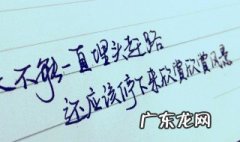 不能一直埋头赶路
还应该停下来欣赏欣赏风景
广东龙网